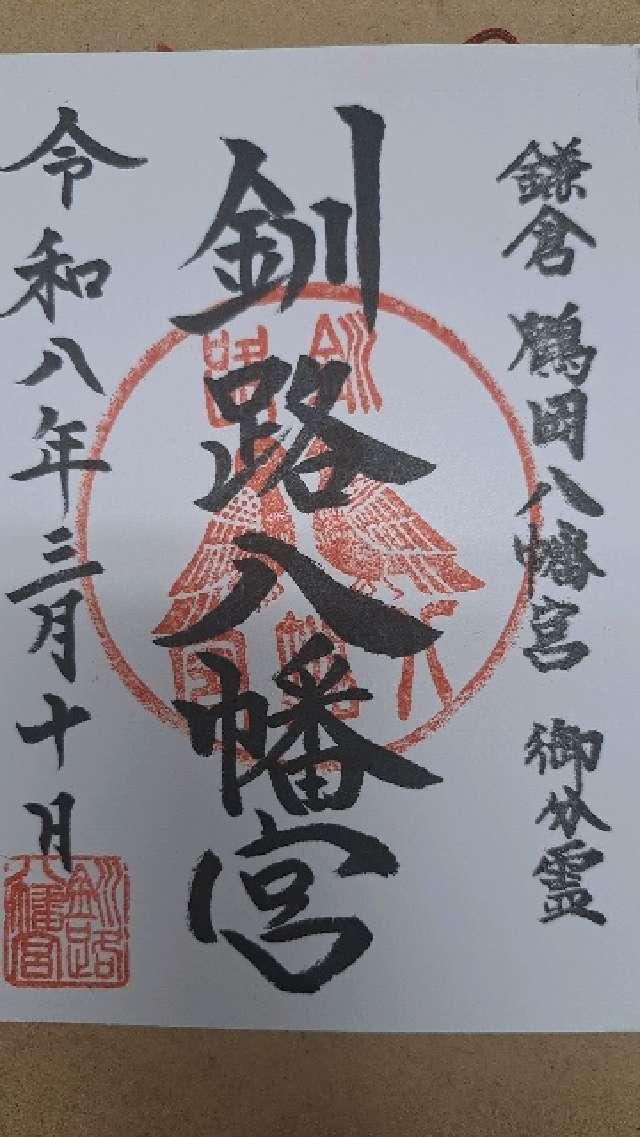 鎌倉 鶴岡八幡宮 御分霊
釧路八幡宮
令和八年三月十日
釧路八幡宮
釧路八幡宮